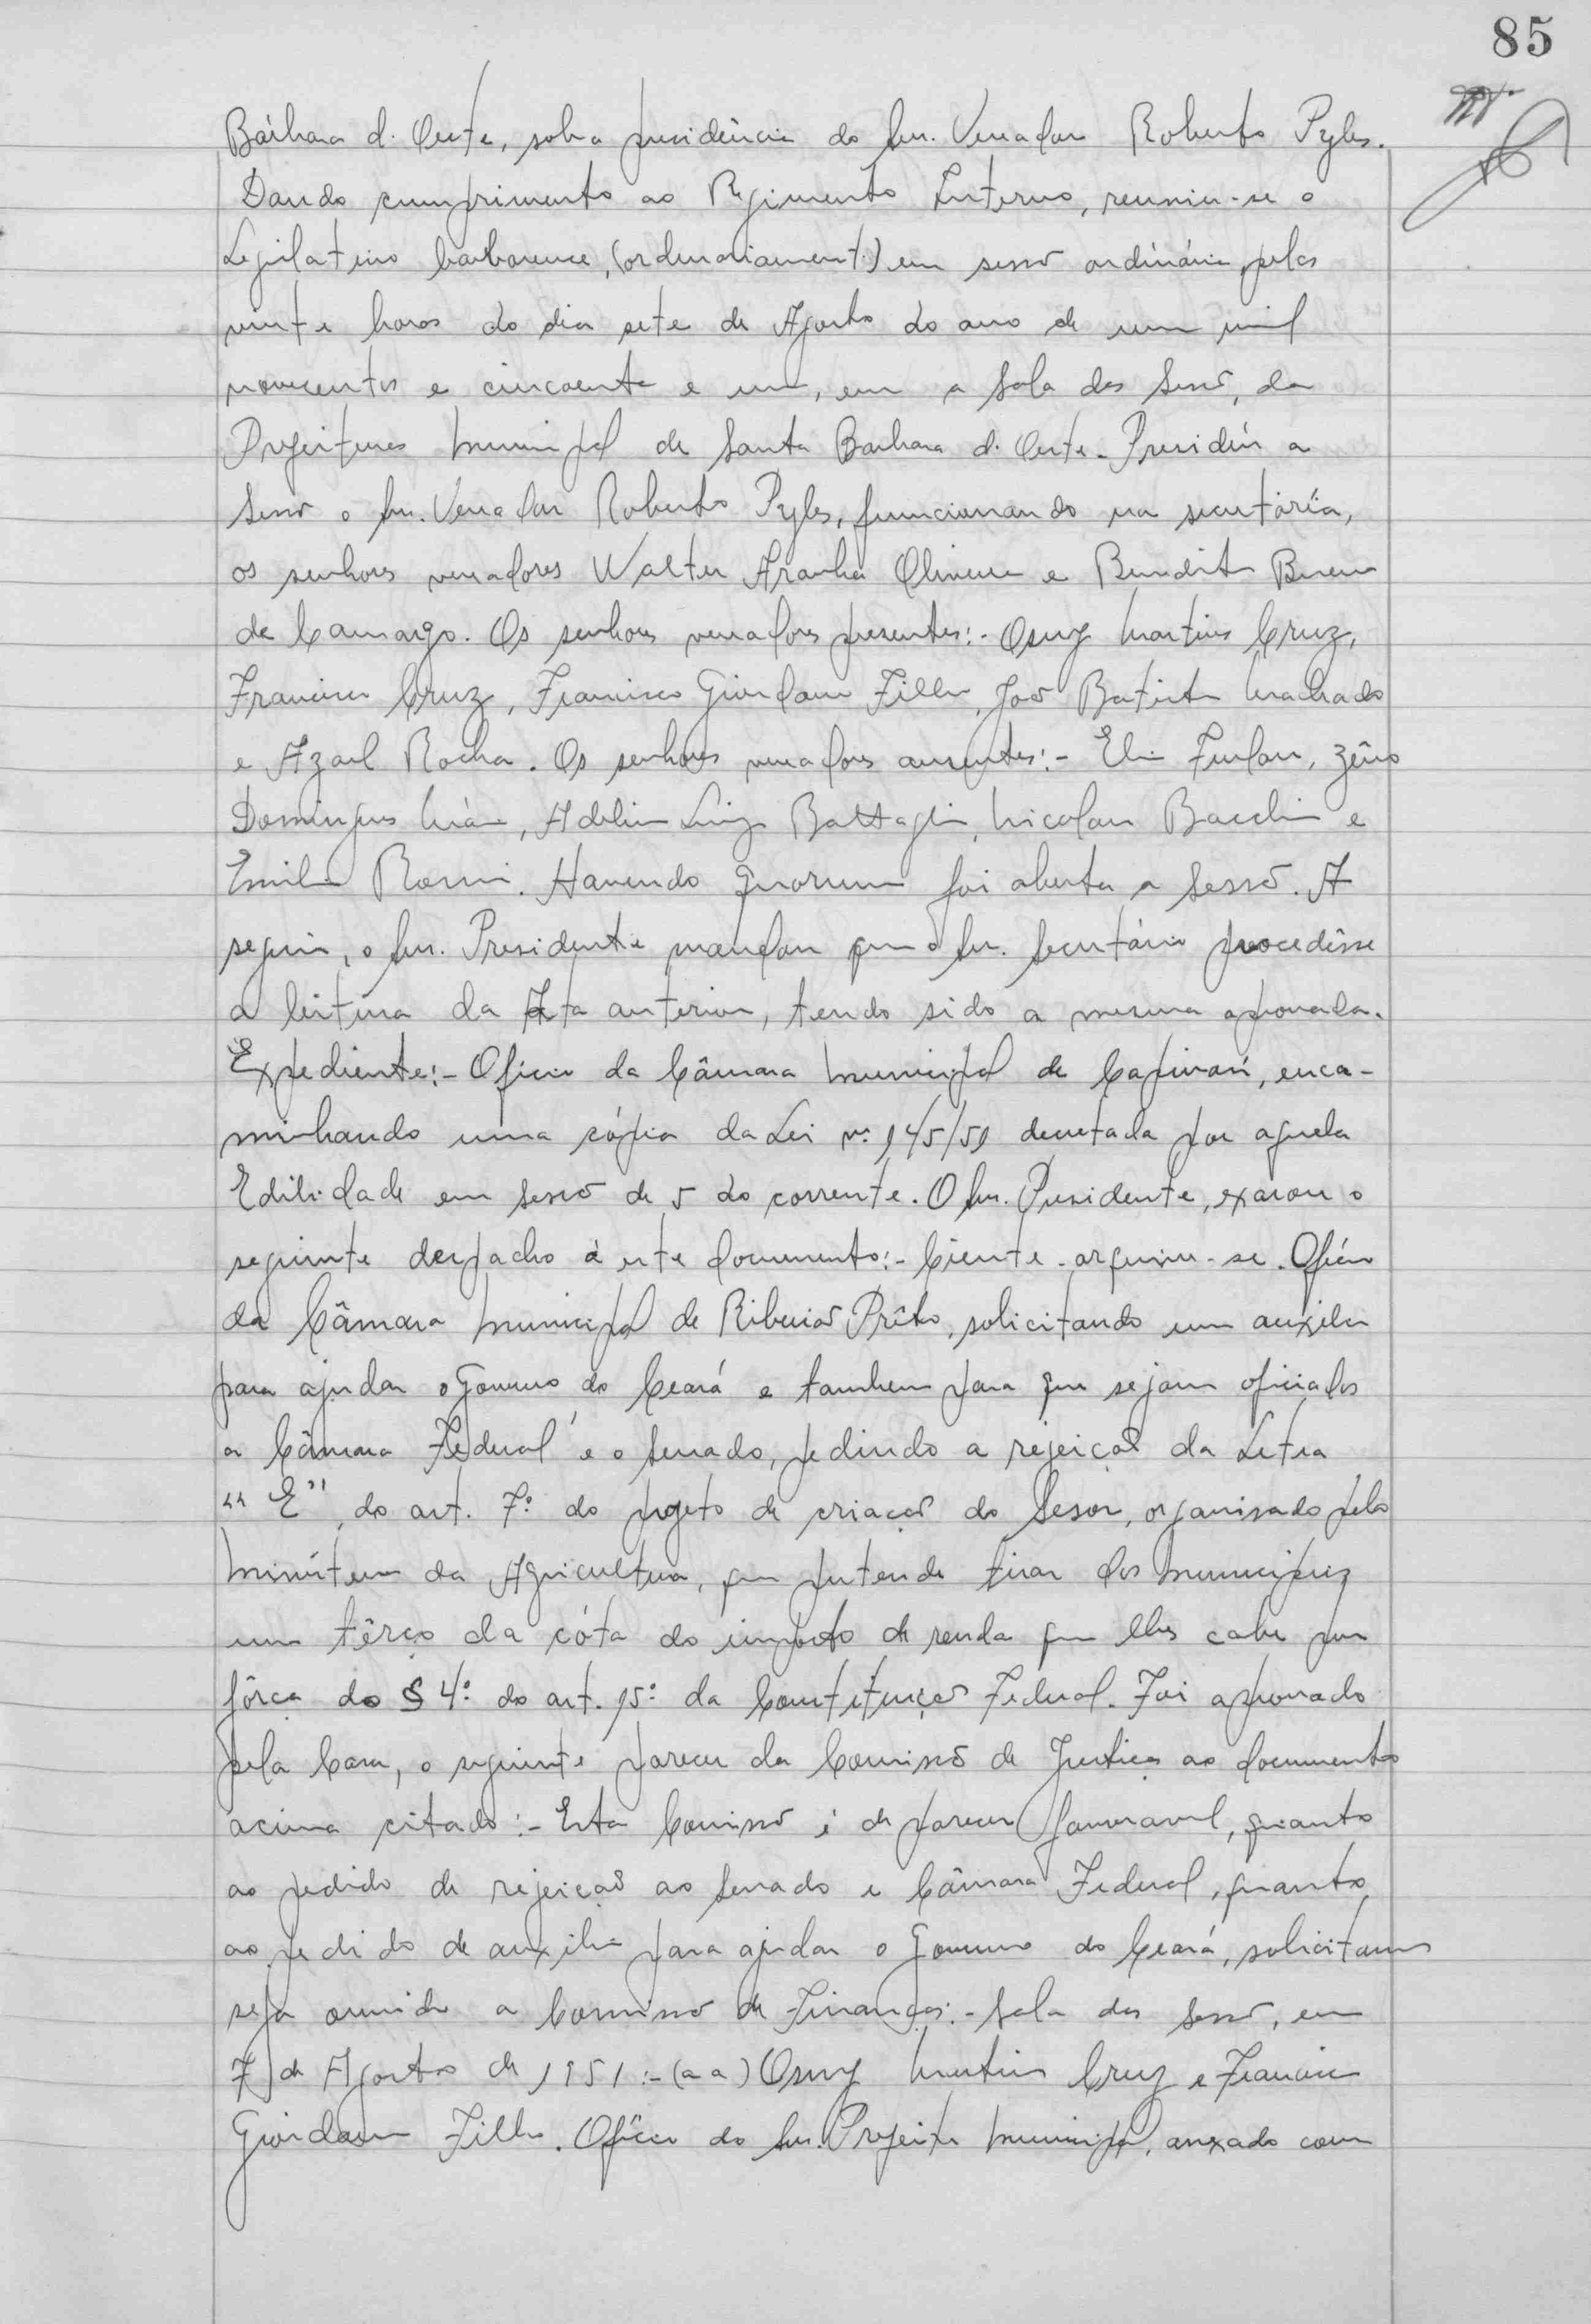 85
Bárbara d. Oeste, sob a presidência do Snr. Vereador Roberto Pyles.
Dando cumprimento ao Regimento Interno, reuniu-se o
Legislativo barbarense, (ordinariamente) em sessão ordinária, pelas
vinte horas do dia sete de Agosto do ano de um mil
novecentos e cincoenta e um, em a Sala das Sessõ, da
Prefeitura Municipal de Santa Barbara d. Oeste. Presidiu a
Sessão o Snr. Vereador Roberto Pyles, funcionando na secretária,
os senhores vereadores Walter Aranha Oliveira e Benedito Bueno
de Camargo. Os senhores vereadores presentes:- Osny Martins Cruz,
Francisco Cruz, Francisco Giordano Filho, João Batista Machado
e Azael Rocha. Os senhores vereadores ausentes:- Elio Furlan, Zêno
Domingues Maia, Adelino Luiz Battagin, Nicolau Bacchin e
Emilio Romi. Havendo quorum foi aberta a Sessão. A
seguir, o Snr. Presidente mandou que o Snr. Secretário procedêsse
a leitura da Ata anterior, tendo sido a mesma aprovada.
Expediente:- Oficio da Câmara Municipal de Capivarí, enca-
minhando uma cópia da Lei nº 145/51 decretada por aquela
Edilidade em Sessão de 5 do corrente. O Snr. Presidente, exarou o
seguinte despacho á este documento:- Ciente - arquive-se. Oficio
da Câmara Municipal de Ribeirão Prêto, solicitando um auxilio
para ajudar o Governo do Ceará e tambem para que sejam oficiados
a Câmara Federal e o Senado, pedindo a rejeição da Letra
"E", do art. 7º do projeto de criação do Sesor, organisado pelo
Ministerio da Agricultura, que pretende tirar dos Municipios
um têrço da cóta do imposto de renda que lhes cabe por
fôrça do § 4º do art. 15º da Constituição Federal. Foi aprovado
pela Casa, o seguinte parecer da Comissão de Justiça ao documento
acima citado:- Esta Comissão é de parecer favoravel, quanto
ao pedido de rejeição ao Senado e Câmara Federal, quanto
ao pedido de auxilio para ajudar o Governo do Ceará, solicitamos
seja ouvido a Comissão de Finanças:- Sala das Sessõ, em
7 de Agosto de 1951:- (aa) Osny Martins Cruz e Francisco
Giordano Filho. Oficio do Snr. Prefeito Municipal, anexado com